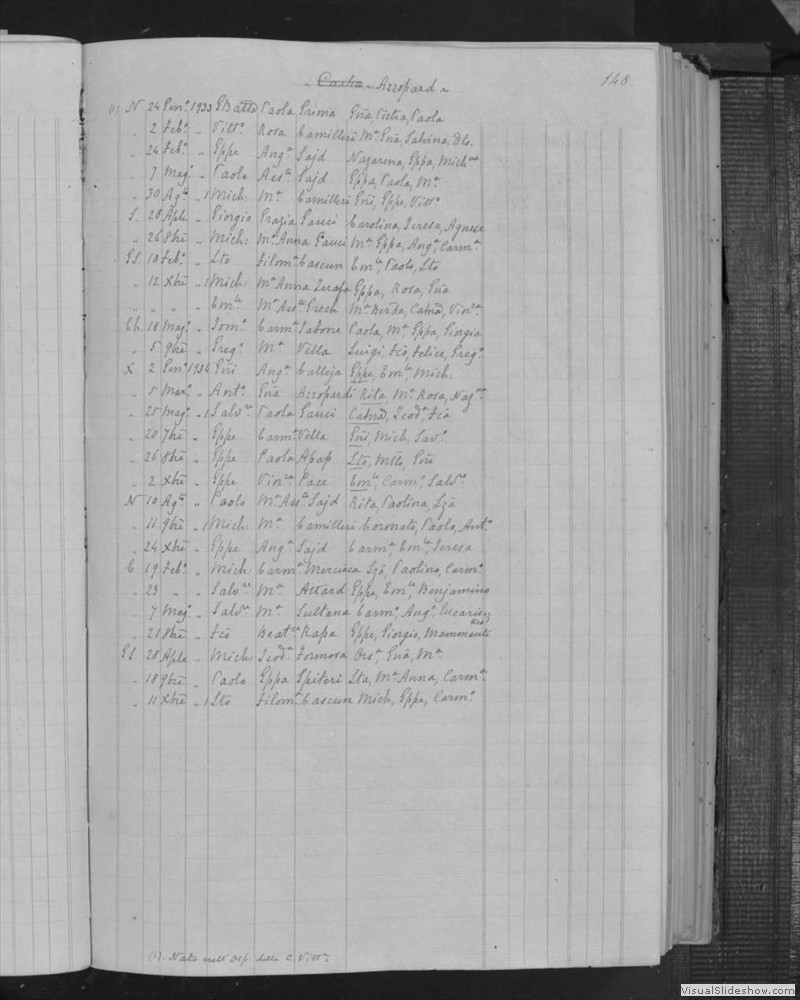 ~ Casha ~ Azzopard ~ 148.
(1) N 24 Gen.° 1933 GBatta Paola Grima Gña, Pietra, Paola
„ 2 Feb.° „ Vitt.° Rosa Camilleri M.ª Gña, Salvina, Dlo.
„ 24 Feb.° „ Gppe Ang.ª Sajd Nazarena, Gppa, Mich.na
„ 7 Mag.° „ Paolo Ass.ta Sajd Gppa, Paola, M.ª
„ 30 Ag.to „ 1 Mich: M.ª Camilleri Gñi, Gppe, Vitt.°
S. 28 Aple „ Giorgio Grazia Gauci Carolina, Teresa, Agnese
„ 26 8bre „ Mich: M.ª Anna Gauci M.ª Gppa, Ang.ª, Carm.ª
GS. 10 Feb.° „ Lto Filom.ª Cascun Em.le, Paolo, Lto
„ 12 Xbre „ 1 Mich: M.ª Anna Zerafa Gppa, Rosa, Gña
„ „ „ „ Em.le M.ª Ass.ta Grech M.ª Catnã, Vin.za
18 Mag.° „ Dom.° Carm.ª Sabone Paola, M.ª Gppa, Giorgia
„ 5 9bre „ Greg.° M.ª Vella Luigi, Fcõ, Felice, Greg.°
X 2 Gen.° 1934 Gñi Ang.ª Calleja Gppe, Em.le, Mich:
„ 5 Mar.° „ Ant.° Gña Azzopardi Rita, M.ª Rosa, Naz.na
„ 25 Mag.° „ 1 Salv.re Paola Gauci Catnã, Teod.ª Fcã
„ 20 7bre „ Gppe Carm.ª Vella Gñi, Mich, Sav.°
„ 26 8bre „ Gppe Paola Agap Lto, Mtto, Gñi
„ 2 Xbre „ Gppe Vin.za Pace Em.le, Carm.°, Salv.re
N 10 Ag.to „ Paolo M.ª Ass.ta Sajd Rita, Paolina, Lzã
„ 11 9bre „ 1 Mich: M.ª Camilleri Coronato, Paolo, Ant.°
„ 24 Xbre „ Gppe Ang.ª Sajd Carm.ª, Em.la, Teresa
C 19 Feb.° „ Mich: Carm.ª Mercieca Lzã, Paolino, Carm.°
„ 23 „ „ Salv.re M.ª Attard Gppe, Em.le, Benjamino
„ 7 Mag.° „ Salv.re M.ª Sultana Carm.°, Ang.°,
„ 21 8bre „ Fcõ Beat.ce Rapa Gppe, Giorgio, Mammante
GS. 28 Aple „ Mich: Teod.ª Formosa Ors.ª, Gña, M.ª
„ 18 9bre „ Paolo Gppa Spiteri Lta, M.ª Anna, Carm.ª
„ 11 Xbre „ 1 Lto Filom.ª Cascun Mich, Gppe, Carm.°
(1). Nato nell' Osp. della C. Vitt.ª
VisualSlideshow.com